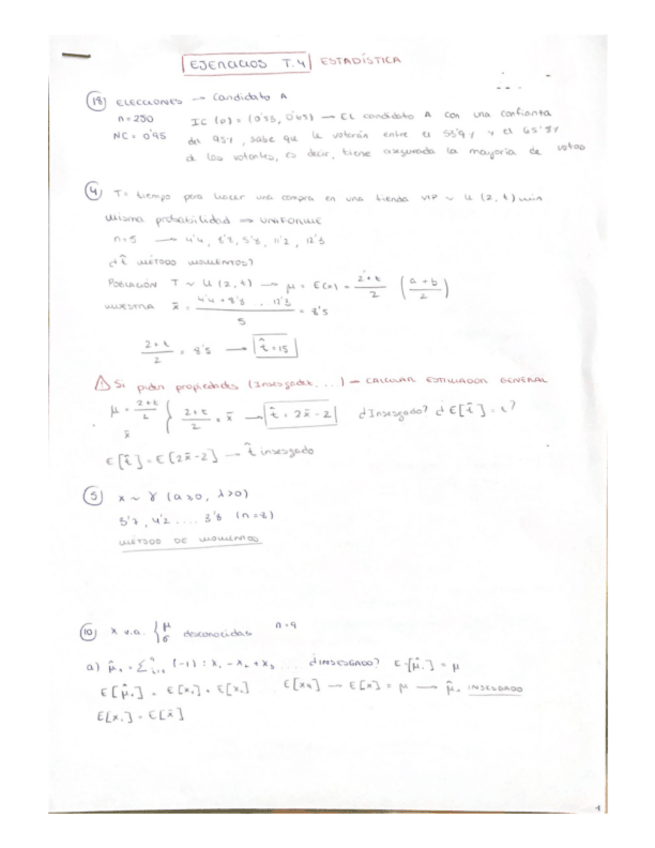 EJERCICIOS T.4 ESTADÍSTICA
18 ELECCIONES → Candidato A
n = 250 IC (p) = (0'55, 0'65) → El candidato A con una confianza
NC = 0'95 del 95%, sabe que le votarán entre el y el
de los votantes, es decir, tiene asegurada la mayoría de votos
4 T = tiempo para hacer una compra en una tienda VIP ~ U (2, t) min
misma probabilidad ⇒ UNIFORME
n = 5 → 4'4, 8'8, 5'8, 11'2, 12'3
¿t̂ MÉTODO MOMENTOS?
POBLACIÓN T ~ U (2, t) → μ = E(x) = (2+t)/2 ((a+b)/2)
MUESTRA x̄ = (4'4 + 8'8 ... 12'3)/5 = 8'5
(2+t)/2 = 8'5 → t̂ = 15
⚠ Si piden propiedades (Insesgadez, ...) → CALCULAR ESTIMADOR GENERAL
μ = (2+t)/2
x̄ } (2+t)/2 = x̄ → t̂ = 2x̄ - 2 ¿Insesgado? ¿E[t̂] = t?
E[t̂] = E[2x̄ - 2] → t̂ insesgado
5 x ~ γ (a>0, λ>0)
4'2 .... 3'8 (n=8)
MÉTODO DE MOMENTOS
10 x v.a. { μ σ desconocidas n = 9
a) μ̂₁ = Σ (-1) : x₁ - x₂ + x₃ .... ¿INSESGADO? E[μ̂₁] = μ
E[μ̂₁] = E[x₁] + E[x₂] E[x₉] → E[x] = μ → μ̂₁ INSESGADO
E[x₁] = E[x̄]
1